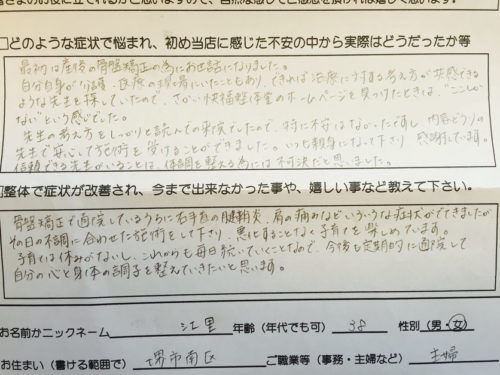 さまのお役に立てればと思いますので、自然な感じでご感想を頂ければ嬉しく思います。
□どのような症状で悩まれ、初め当店に感じた不安の中から実際はどうだったか等
最初は産後の骨盤矯正の為にお世話になりました。
自分自身が 医療の現場にいたこともあり、できれば治療に対する考え方が共感できる
ような先生を探していたので、さかい快福整体室のホームページを見つけたときは、"ここしか
ない"という感じでした。
先生の考え方をしっかりと読んでの来院でしたので、特に不安はなかったですし、内容どうりの
先生で安心して施術を受けることができました。いつも親身になって下さり 感謝しています。
信頼できる先生がいることは、体調を整える為には不可決だと思いました。
□整体で症状が改善され、今まで出来なかった事や、嬉しい事など教えて下さい。
骨盤矯正で通院しているうちに右手首の腱鞘炎、肩の痛みなどいろいろな症状がでてきましたが
その日の体調に合わせた施術をして下さり、悪化することなく子育てを楽しめています。
子育ては休みがないし、これからも毎日続いていくことなので、今後も定期的に通院して
自分の心と身体の調子を整えていきたいと思います。
お名前かニックネーム 江里 年齢(年代でも可) 38 性別(男・女)
お住まい(書ける範囲で) 堺市南区 ご職業等(事務・主婦など) 主婦